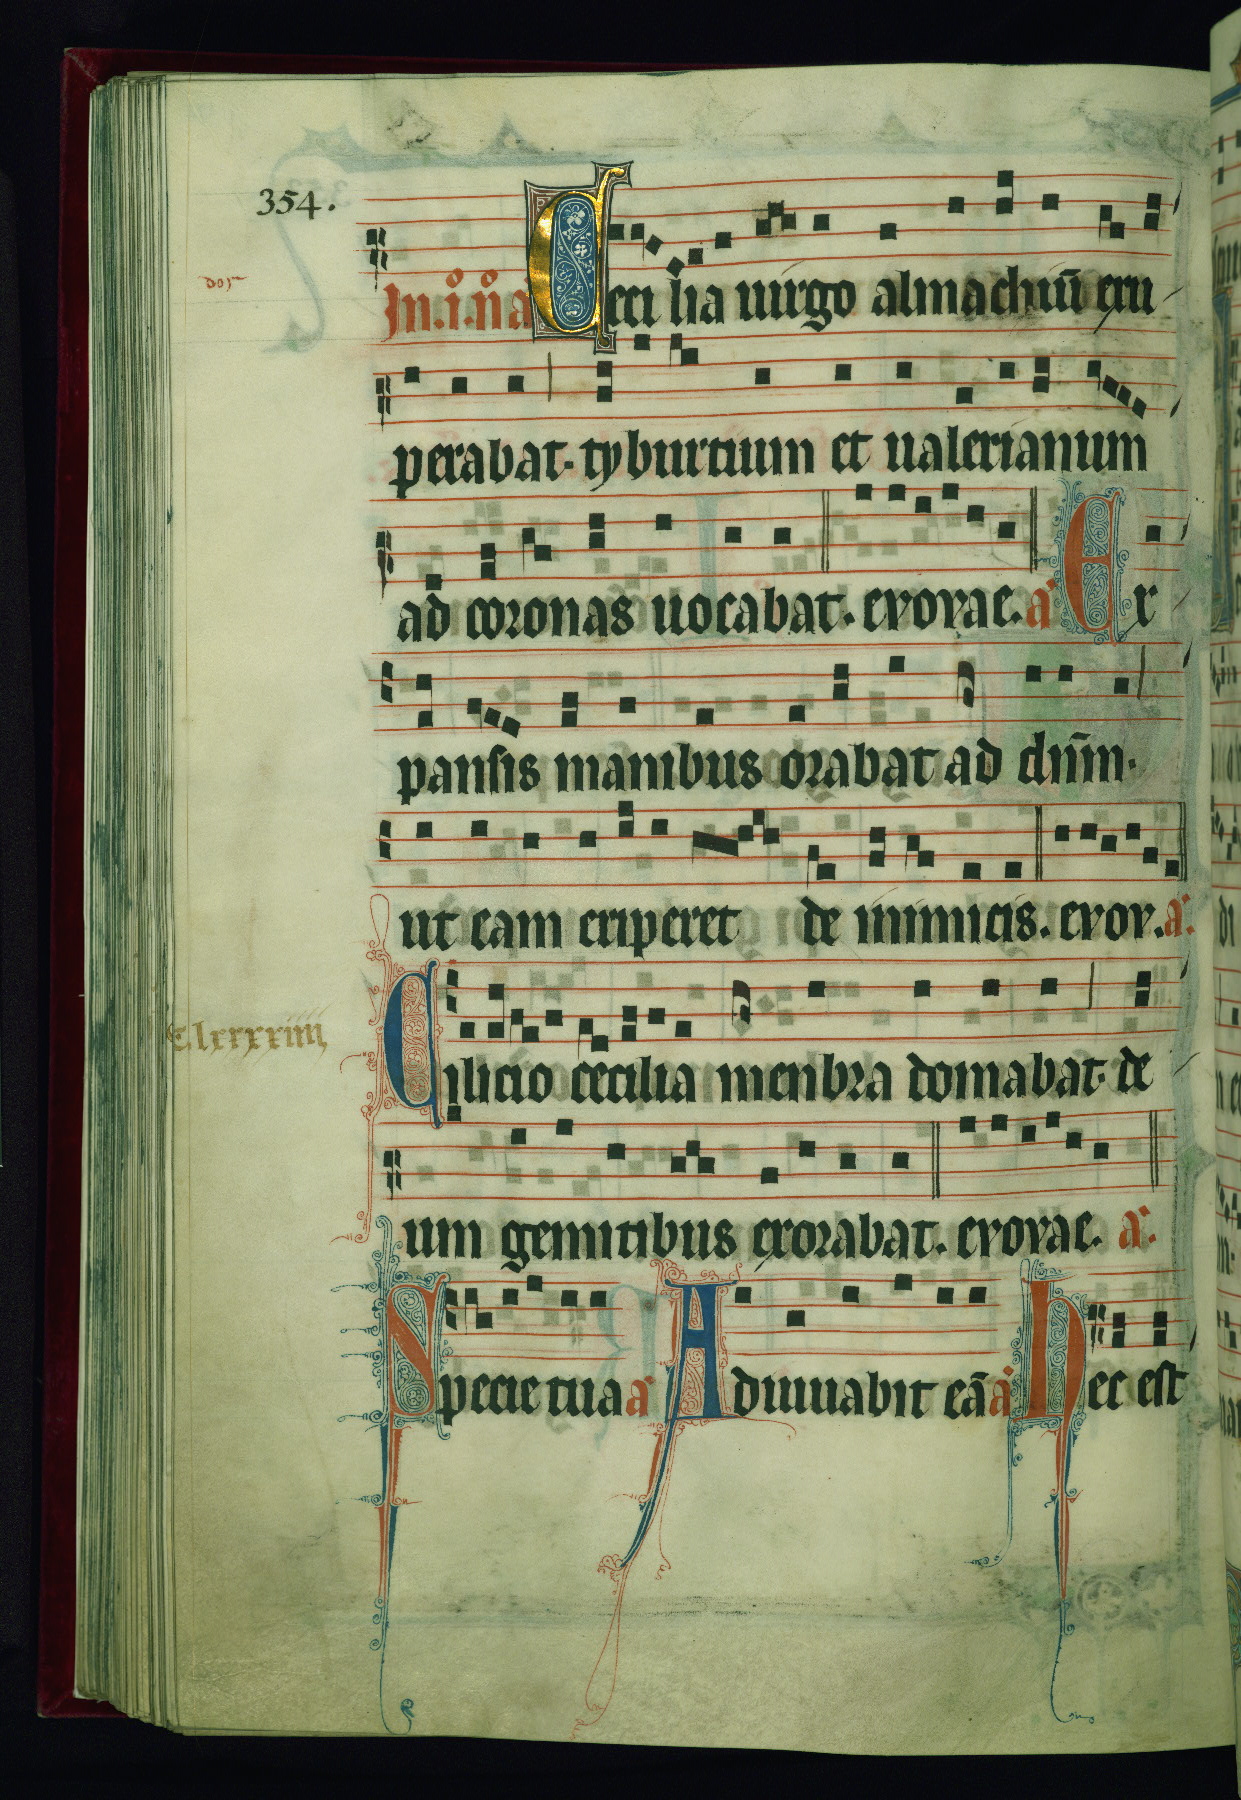 354.
In.i.n̄ a Ceci lia uirgo almachiū exu
perabat. tyburtium et ualerianum
ad coronas uocabat. evovae. a Ex
pansis manibus orabat ad dn̄m.
ut eam eriperet de inimicis. evov. a.
C.lxxxxiiii
Cilicio cecilia menbra domabat. de
um gemitibus exorabat. evovae. a.
Specie tua a Adiuuabit eā a Hec est